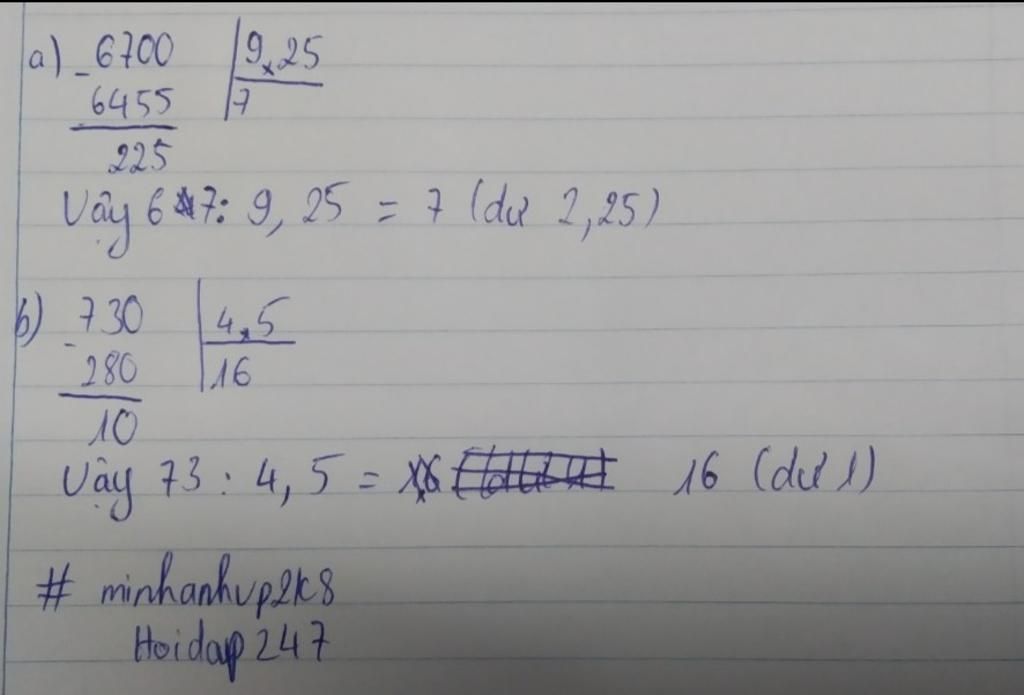 a) -6700 | 9,25
6455 | 7
225
Vậy 67: 9, 25 = 7 (dư 2,25)
b) -730 | 4,5
280 | 16
10
Vậy 73 : 4, 5 = 16 (dư 1)
# minhanhvp2k8
Hoidap 247